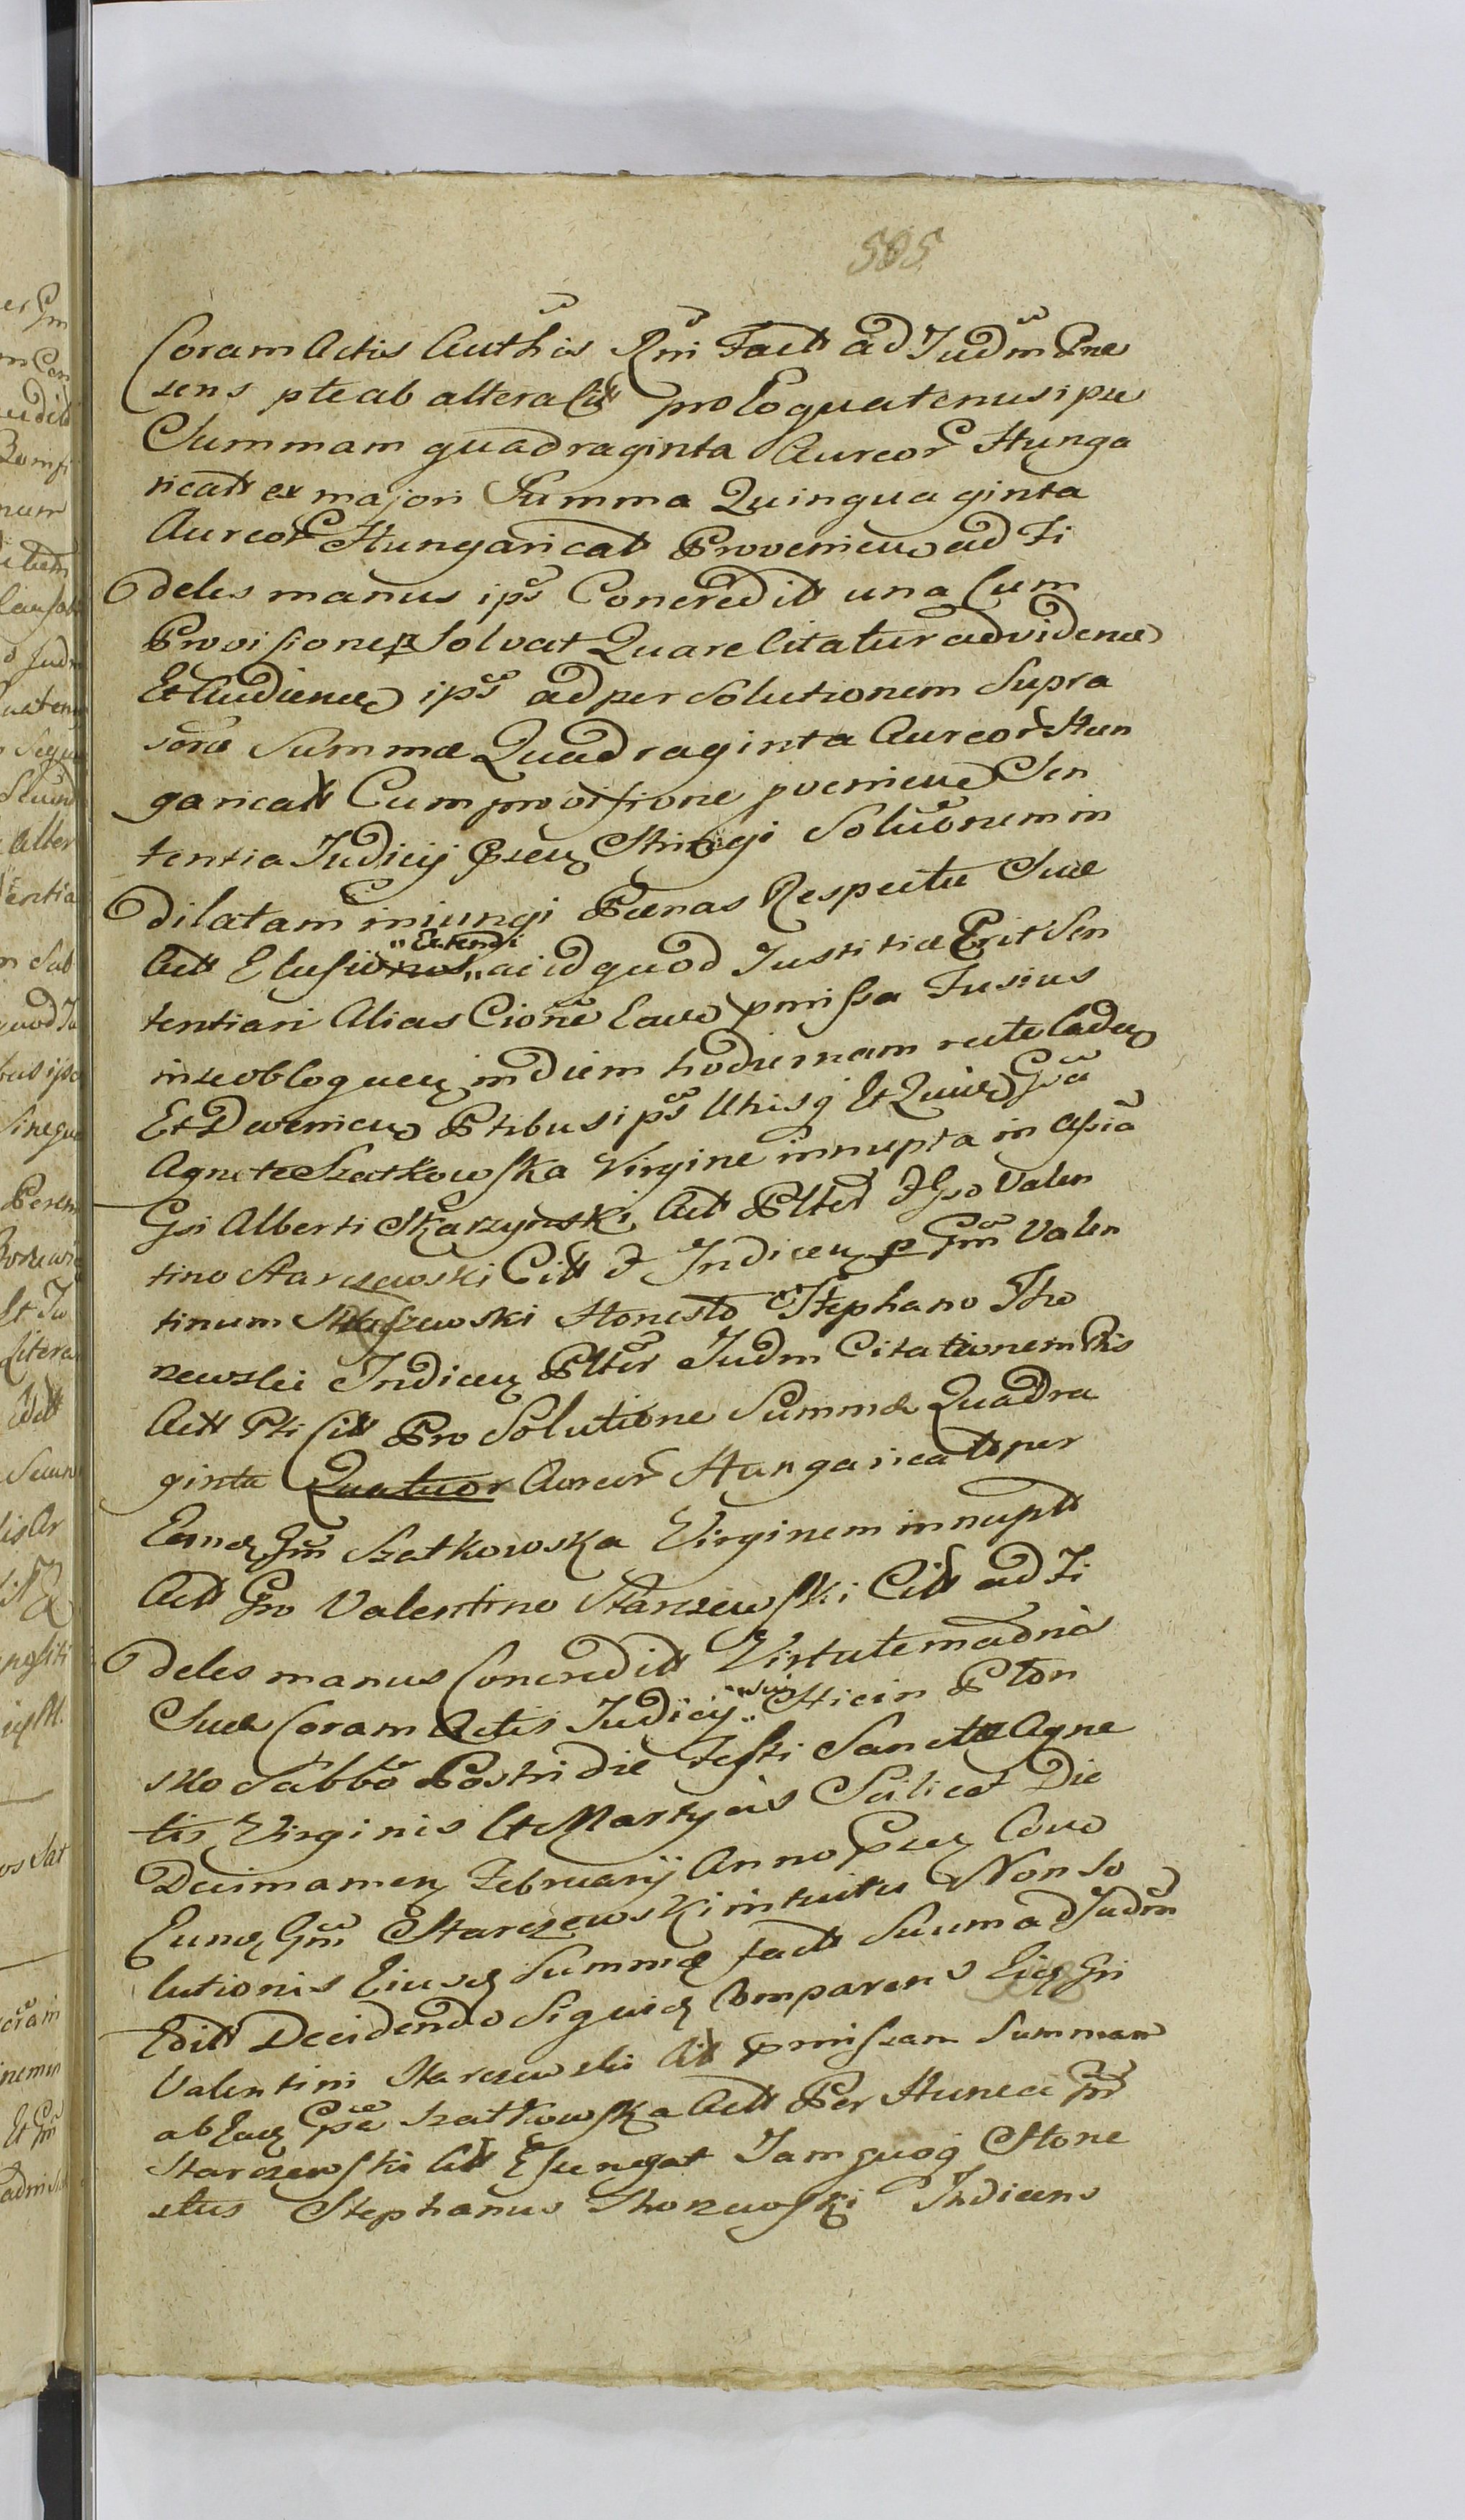 505
Coram Actis Auth̃is Rñi Fact ad Judm̃ Præ
sens pte ab altera Citt pro Eo quatenus ipse
Summam quadraginta Aureor Hunga
ricatt ex majori Summa Quinquaginta
Aureor Hungaricatt Provenien ad Fi
deles manus ips Concreditt una Cum
Provisione p Solvat Quare Citatur ad videnđ
Et Audienđ ips ad per Solutionem Supra
Summæ Quadraginta Aureor Hun
garicatt Cum provisione Sen
tentia Judicij Stringi Solũonem in
dilatam iniungi Pœnas Respectu Suæ
Att Elusionis "Extendi" ac id quod Justitiæ Erit Sen
tentiari Alias Cioñe Eađ pmissa Fusius
in se obloquen in diem hodiernam recte Caden
Et Devenien Ptibus ips Utrisq Et Quidem Gsa
Agnete Szatkowska Virgine innupta in Assia
Gsi Alberti Skarzynski Act Pltet & Gso Valen
tino Starczewski Citt & Indicen p Gm Valen
tinum Starczewski Honesto Stephano Tho
rzewski Indicen Plter Judm Citationem Ptis
Act Pti Citt Pro Solutione Summæ Quadra
ginta Quatuor Aureor Hungaricatt per
Eand Gm Szatkowska Virginem innupt
Act Gso Valentino Starczewski Citt ad Fi
deles manus Concreditt Virtute
Suæ Coram Actis Judicij "sui" Hic in Plon
sko Sabbo Postridie Festi Sanctæ Agne
tis Virginis Et Martyris Scilicet Die
Decima men Februarij Anno
Eund Gm Starczewski intuitu Non So
lutionis Eiusd Summæ fact Suum ad Judm
Editt Decidendo Siquid Comparens Gsi
Valentini Starczewski Citt pmissam Summam
ab Ead Gsa Szatkowska Act Per Hunce Gm
Starczewski Citt Jam quoq Hone
stus Stephanus Thorzewski Indicens